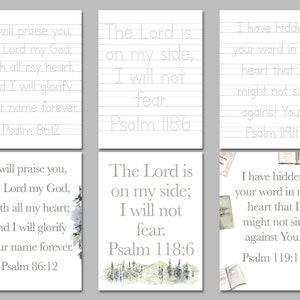 will praise you,
Lord my God,
th all my heart;
nd I will glorify
ur name forever.
Psalm 86:12
The Lord is
on my side;
I will not
fear.
Psalm 118:6
I have hidden
your word in m
heart that I
might not sin
against You.
Psalm 119:11
will praise you,
Lord my God,
th all my heart;
nd I will glorify
ur name forever.
Psalm 86:12
The Lord is
on my side;
I will not
fear.
Psalm 118:6
I have hidden
your word in m
heart that I
might not sin
against You.
Psalm 119:1